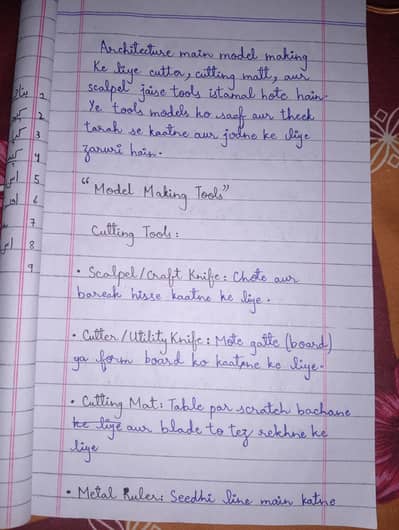 Architecture main model making
Ke liye cutter, cutting matt, aur
scalpel jaise tools istamal hote hain.
Ye tools models ko saaf aur theek
tarah se kaatne aur jodne ke liye
zaruri hain.
"Model Making Tools"
Cutting Tools:
• Scalpel/Craft Knife: Chote aur
bareek hisse kaatne ke liye.
• Cutter/Utility Knife: Mote gatte (board)
ya form board ko kaatne ke liye.
• Cutting Mat: Table par scratch bachane
ke liye aur blade to tez rekhne ke
liye
• Metal Ruler: Seedhi line main katne
1
2
3
4
5
6
7
8
9